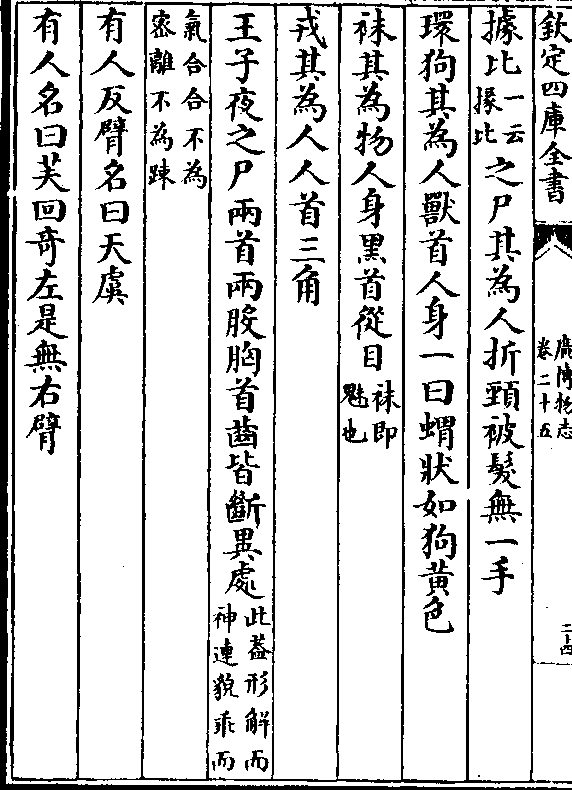 欽定四庫全書
廣博物志
卷二十五
二十四
據比一云掾比之尸其為人折頸被髮無一手
環狗其為人獸首人身一曰蝟狀如狗黃色
袜其為物人身黑首從目袜即魅也
戎其為人人首三角
王子夜之尸兩首兩股胸首齒皆斷異處此葢形解而神連貌乖而
氣合合不為密離不為踈
有人反臂名曰天虞
有人名曰吴回奇左是無右臂